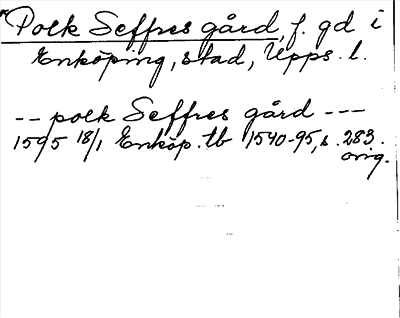 Polk Seffres gård, f. gd i
Enköping, stad, Upps. l.
-- polk Seffres gård ---
1595 18/1 Enköp. tb 1540-95, s. 283.
orig.